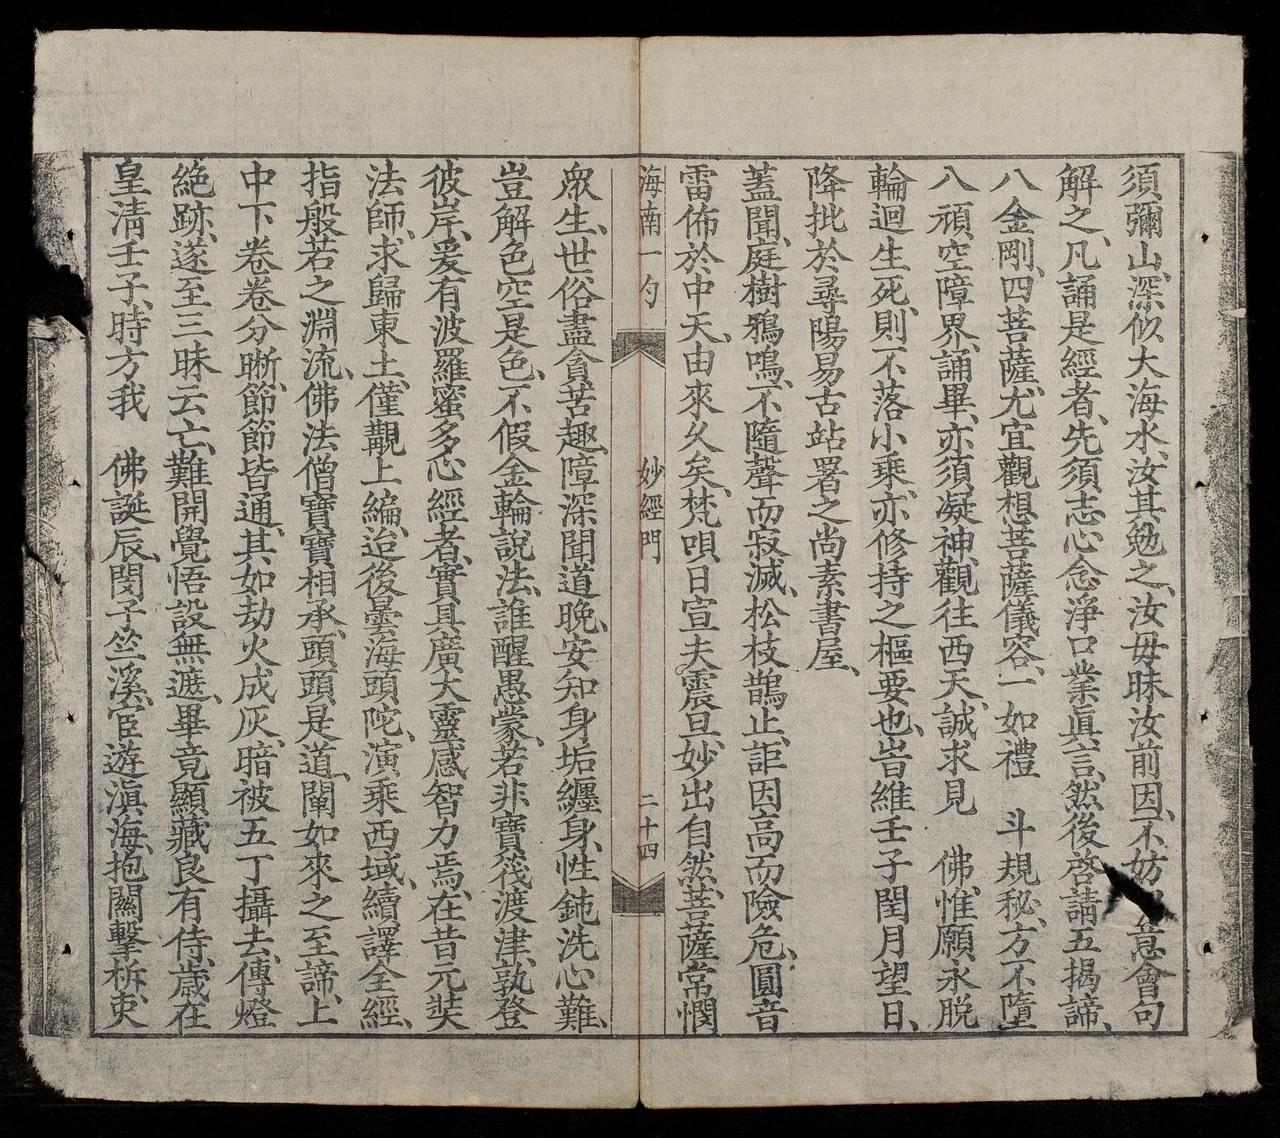 須彌山、深似大海水、汝其勉之、汝毋昧汝前因、不妨意會句
解之、凡誦是經者、先須志心念淨口業眞言、然後啓請五揭諦、
八金剛、四菩薩、尤宜觀想菩薩儀容、一如禮　斗規秘、方不墮
八頑空障界、誦畢、亦須凝神、觀往西天、誠求見　佛、惟願永脫
輪迴生死、則不落小乘、亦修持之樞要也、旹維壬子閏月望日、
降批於尋陽易古站署之尚素書屋、
蓋聞、庭樹鴉鳴、不隨聲而寂滅、松枝鵲止、詎因高而險危、圓音
雷佈於中天、由來久矣、梵唄日宣夫震旦、妙出自然、菩薩常憫
海南一勺
妙經門
二十四
衆生、世俗盡貪苦趣、障深聞道晚、安知身垢纏身、性鈍洗心難、
豈解色空是色、不假金輪說法、誰醒愚蒙、若非寶筏渡津、孰登
彼岸、爰有波羅蜜多心經者、實具廣大靈感智力焉、在昔元奘
法師、求歸東土、僅覯上編、迨後曇海頭陀、演乘西域、續譯全經、
指般若之淵流、佛法僧寶寶相承、頭頭是道、闡如來之至諦、上
中下卷卷分晰、節節皆通、其如劫火成灰、暗被五丁攝去、傳燈
絶跡、遂至三昧云亡、難開覺悟設無遮、畢竟顯藏良有侍、歲在
皇淸壬子、時方我　佛誕辰、閔子竺溪、宦遊滇海、抱關擊柝、吏